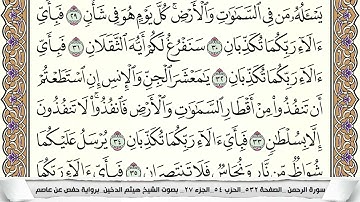 يَسْـَٔلُهُۥ مَن فِى ٱلسَّمَـٰوَٰتِ وَٱلْأَرْضِ ۚ كُلَّ يَوْمٍ هُوَ فِى شَأْنٍ ٢٩ فَبِأَىِّ
ءَالَآءِ رَبِّكُمَا تُكَذِّبَانِ ٣٠ سَنَفْرُغُ لَكُمْ أَيُّهَ ٱلثَّقَلَانِ ٣١ فَبِأَىِّ
ءَالَآءِ رَبِّكُمَا تُكَذِّبَانِ ٣٢ يَـٰمَعْشَرَ ٱلْجِنِّ وَٱلْإِنسِ إِنِ ٱسْتَطَعْتُمْ
أَن تَنفُذُوا۟ مِنْ أَقْطَارِ ٱلسَّمَـٰوَٰتِ وَٱلْأَرْضِ فَٱنفُذُوا۟ ۚ لَا تَنفُذُونَ
إِلَّا بِسُلْطَـٰنٍ ٣٣ فَبِأَىِّ ءَالَآءِ رَبِّكُمَا تُكَذِّبَانِ ٣٤ يُرْسَلُ عَلَيْكُمَا
شُوَاظٌ مِّن نَّارٍ وَنُحَاسٌ فَلَا تَنتَصِرَانِ ٣٥ فَبِأَىِّ ءَالَآءِ رَبِّكُمَا
سورة الرحمن _الصفحة ٥٣٢_الحزب ٥٤_الجزء ٢٧_ بصوت الشيخ هيثم الدخين_برواية حفص عن عاصم